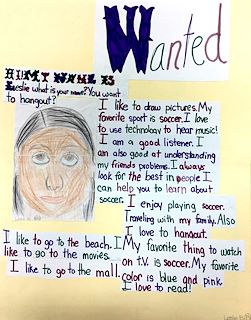 Wanted
HI! MY NAME IS
Leslie what is your name? You want
to hangout?
I like to draw pictures. My
favorite sport is soccer. I love
to use technology to hear music!
I am a good listener. I
am also good at understanding
my friends problems. I always
look for the best in people I
can help you to learn about
soccer. I enjoy playing soccer.
Traveling with my family. Also
I love to hangout.
I like to go to the beach. I My favorite thing to watch
like to go to the movies. on t.v. is soccer. My favorite
I like to go to the mall. color is blue and pink.
I love to read!